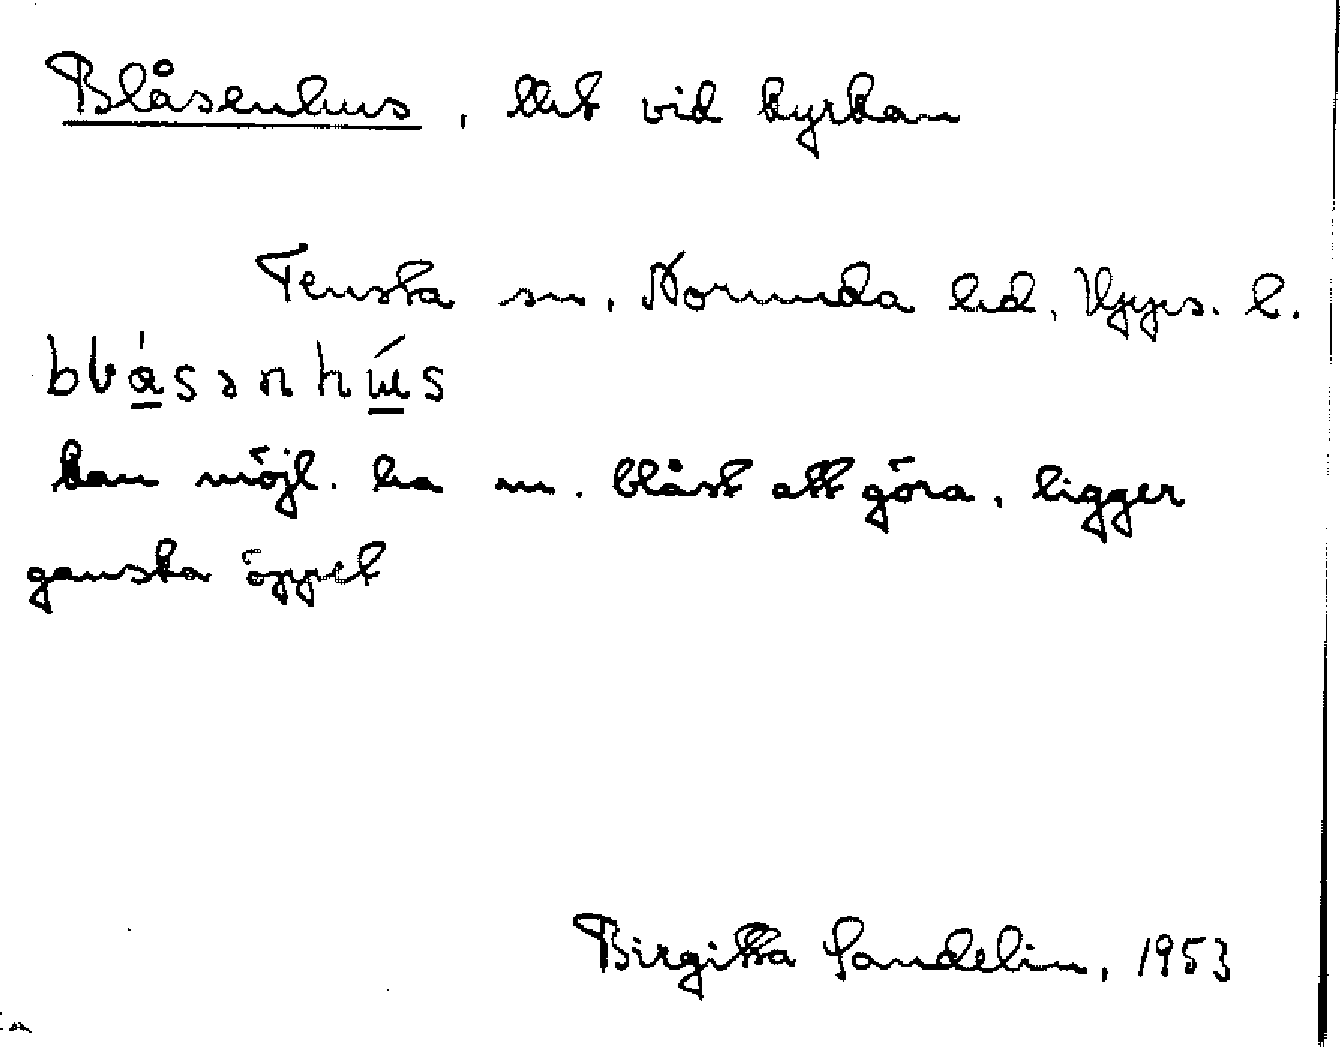 Blåsenhus, tlht vid kyrkan
Tensta sn. Norunda hd. Upps. l.
kan möjl. ha m. blåst att göra, ligger
ganska öppet
Birgitta Sandelin, 1953